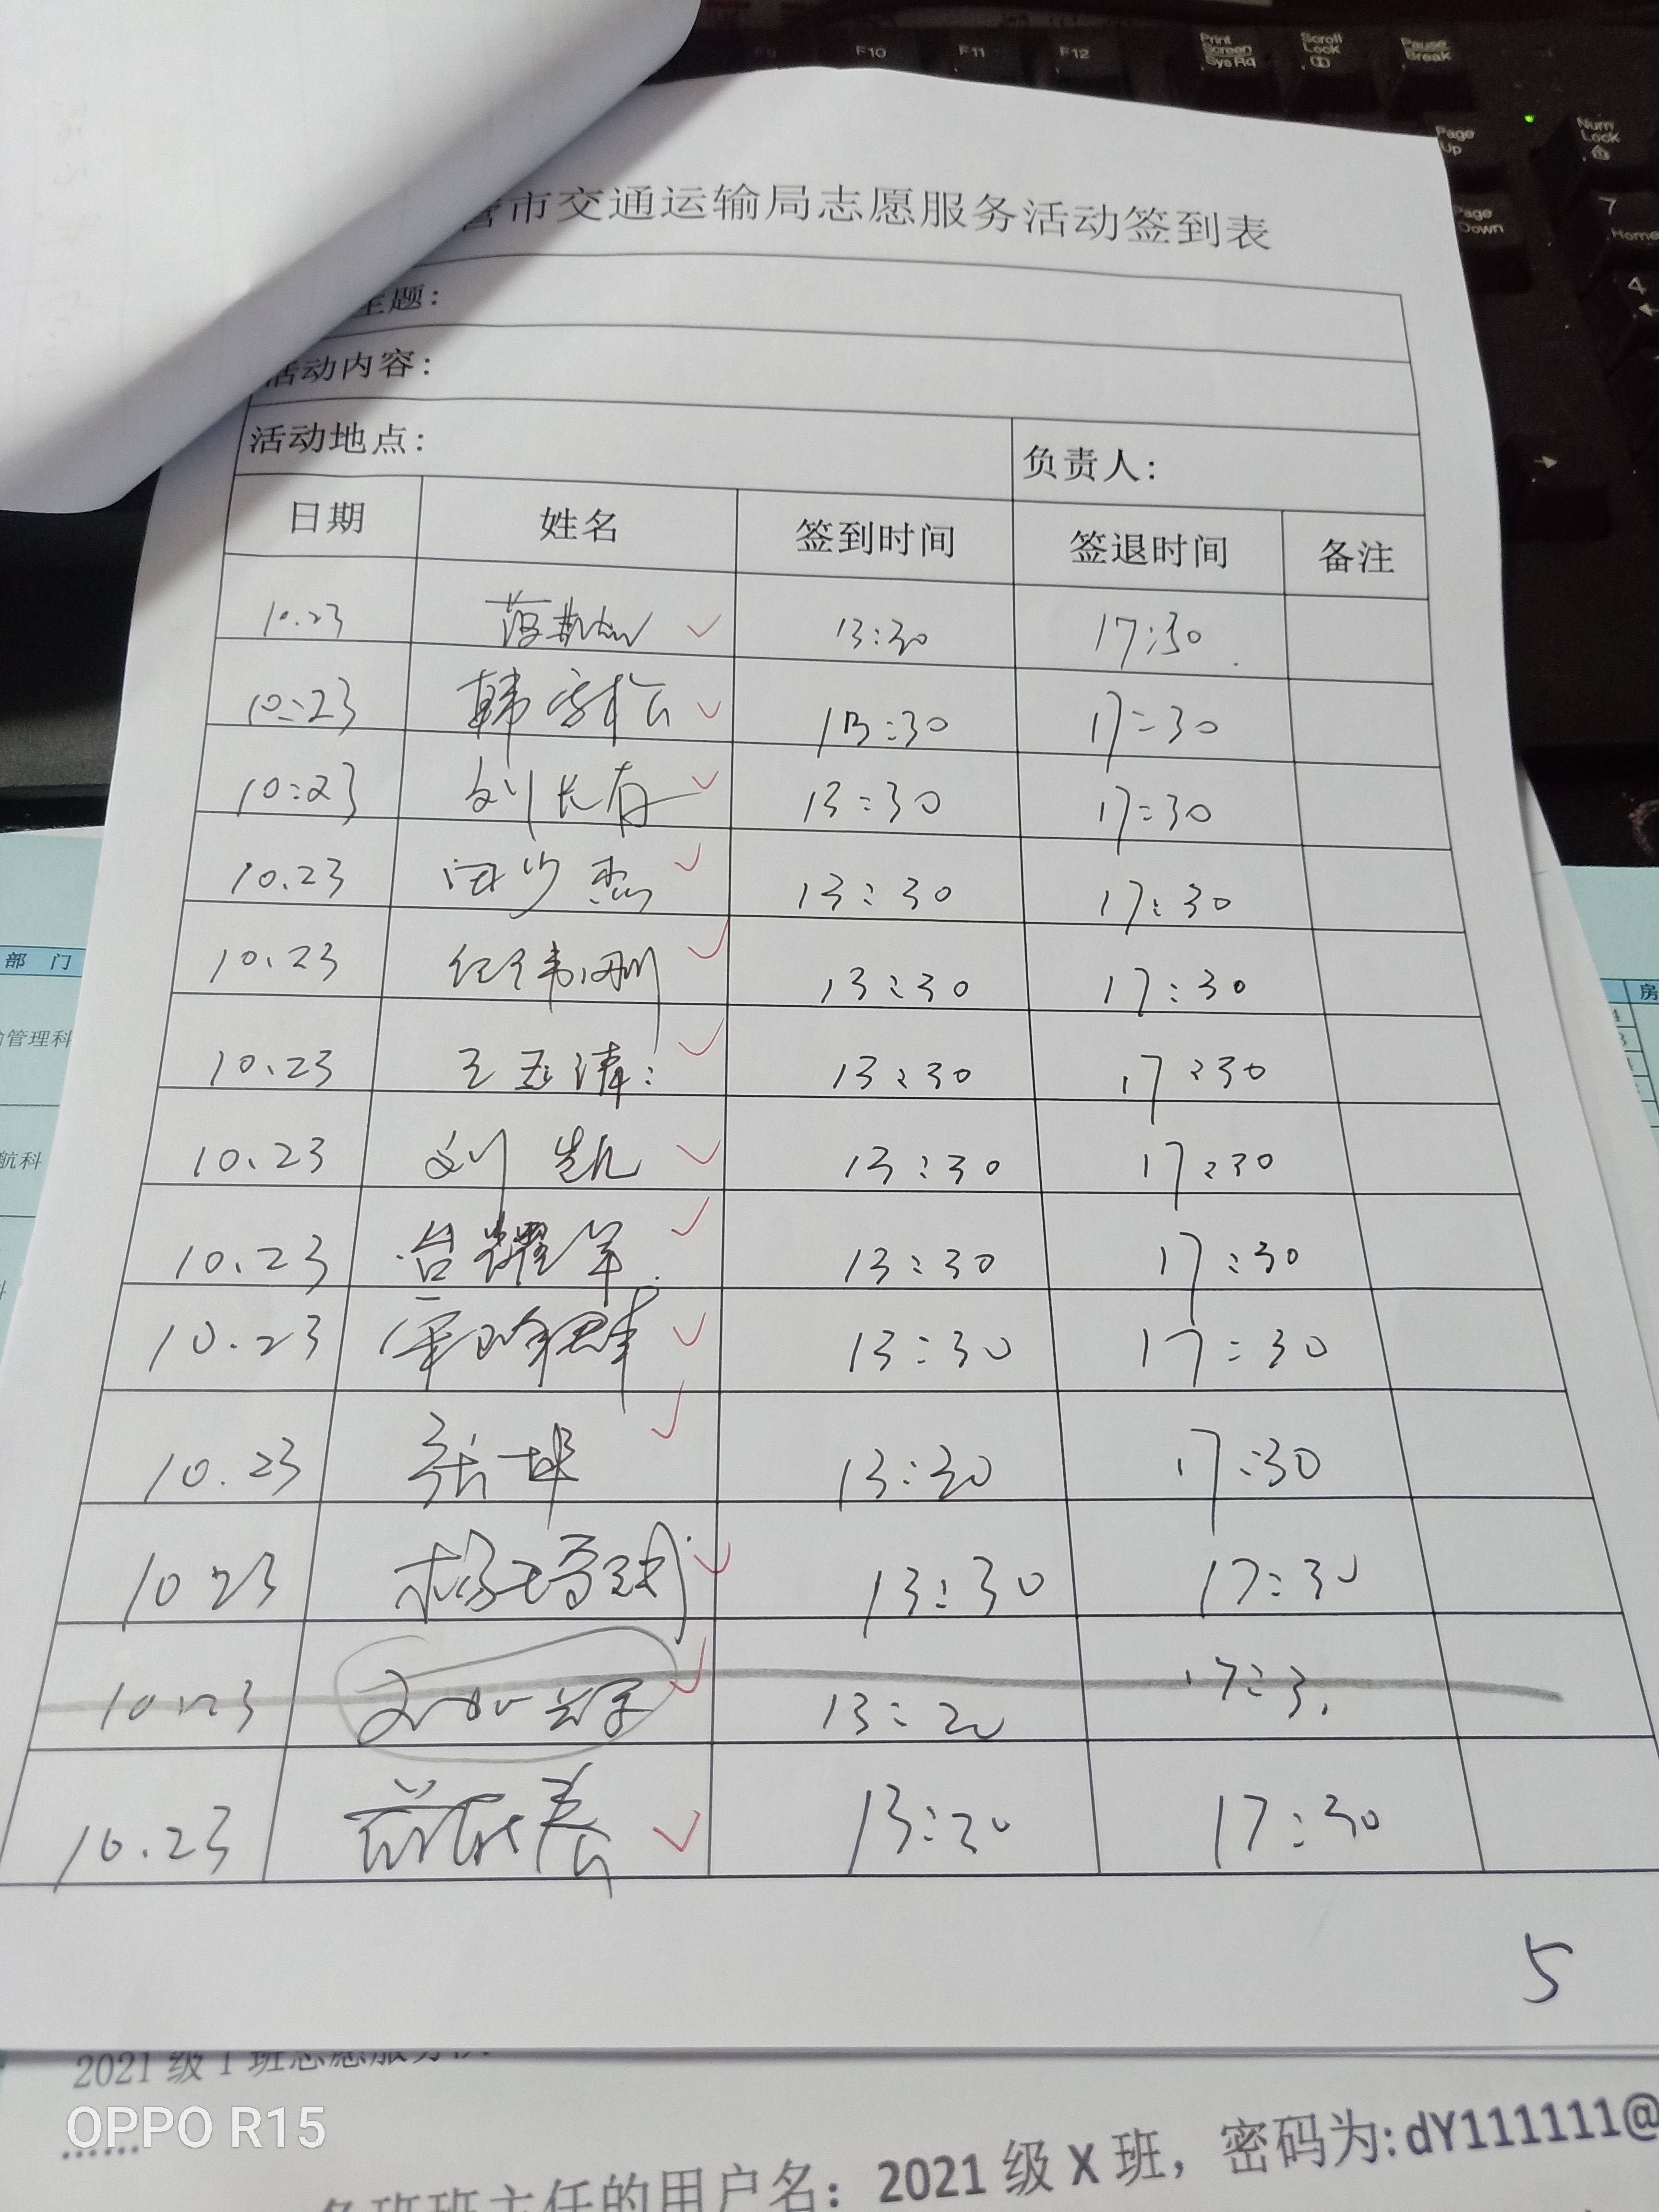 F9 F10 F11 F12 Print Screen SysRq Scroll Lock Pause Break
Page Up Num Lock
Page Down 7 Home
4
营市交通运输局志愿服务活动签到表
主题：
活动内容：
活动地点： 负责人：
日期 姓名 签到时间 签退时间 备注
10.23 13:30 17:30
10:23 韩 13:30 17:30
10:23 刘长存 13:30 17:30
10.23 13:30 17:30
10.23 任伟刚 13:30 17:30
10.23 王玉涛 13:30 17:30
10.23 刘凯 13:30 17:30
10.23 台耀军 13:30 17:30
10.23 13:30 17:30
10.23 张坤 13:30 17:30
10 23 杨 13:30 17:30
10.23
10.23 13:30 17:30
5
部 门
管理科
航科
房
2021 级 1 班志愿服务队
……
各班班主任的用户名：2021 级 X 班，密码为:dY111111@
OPPO R15